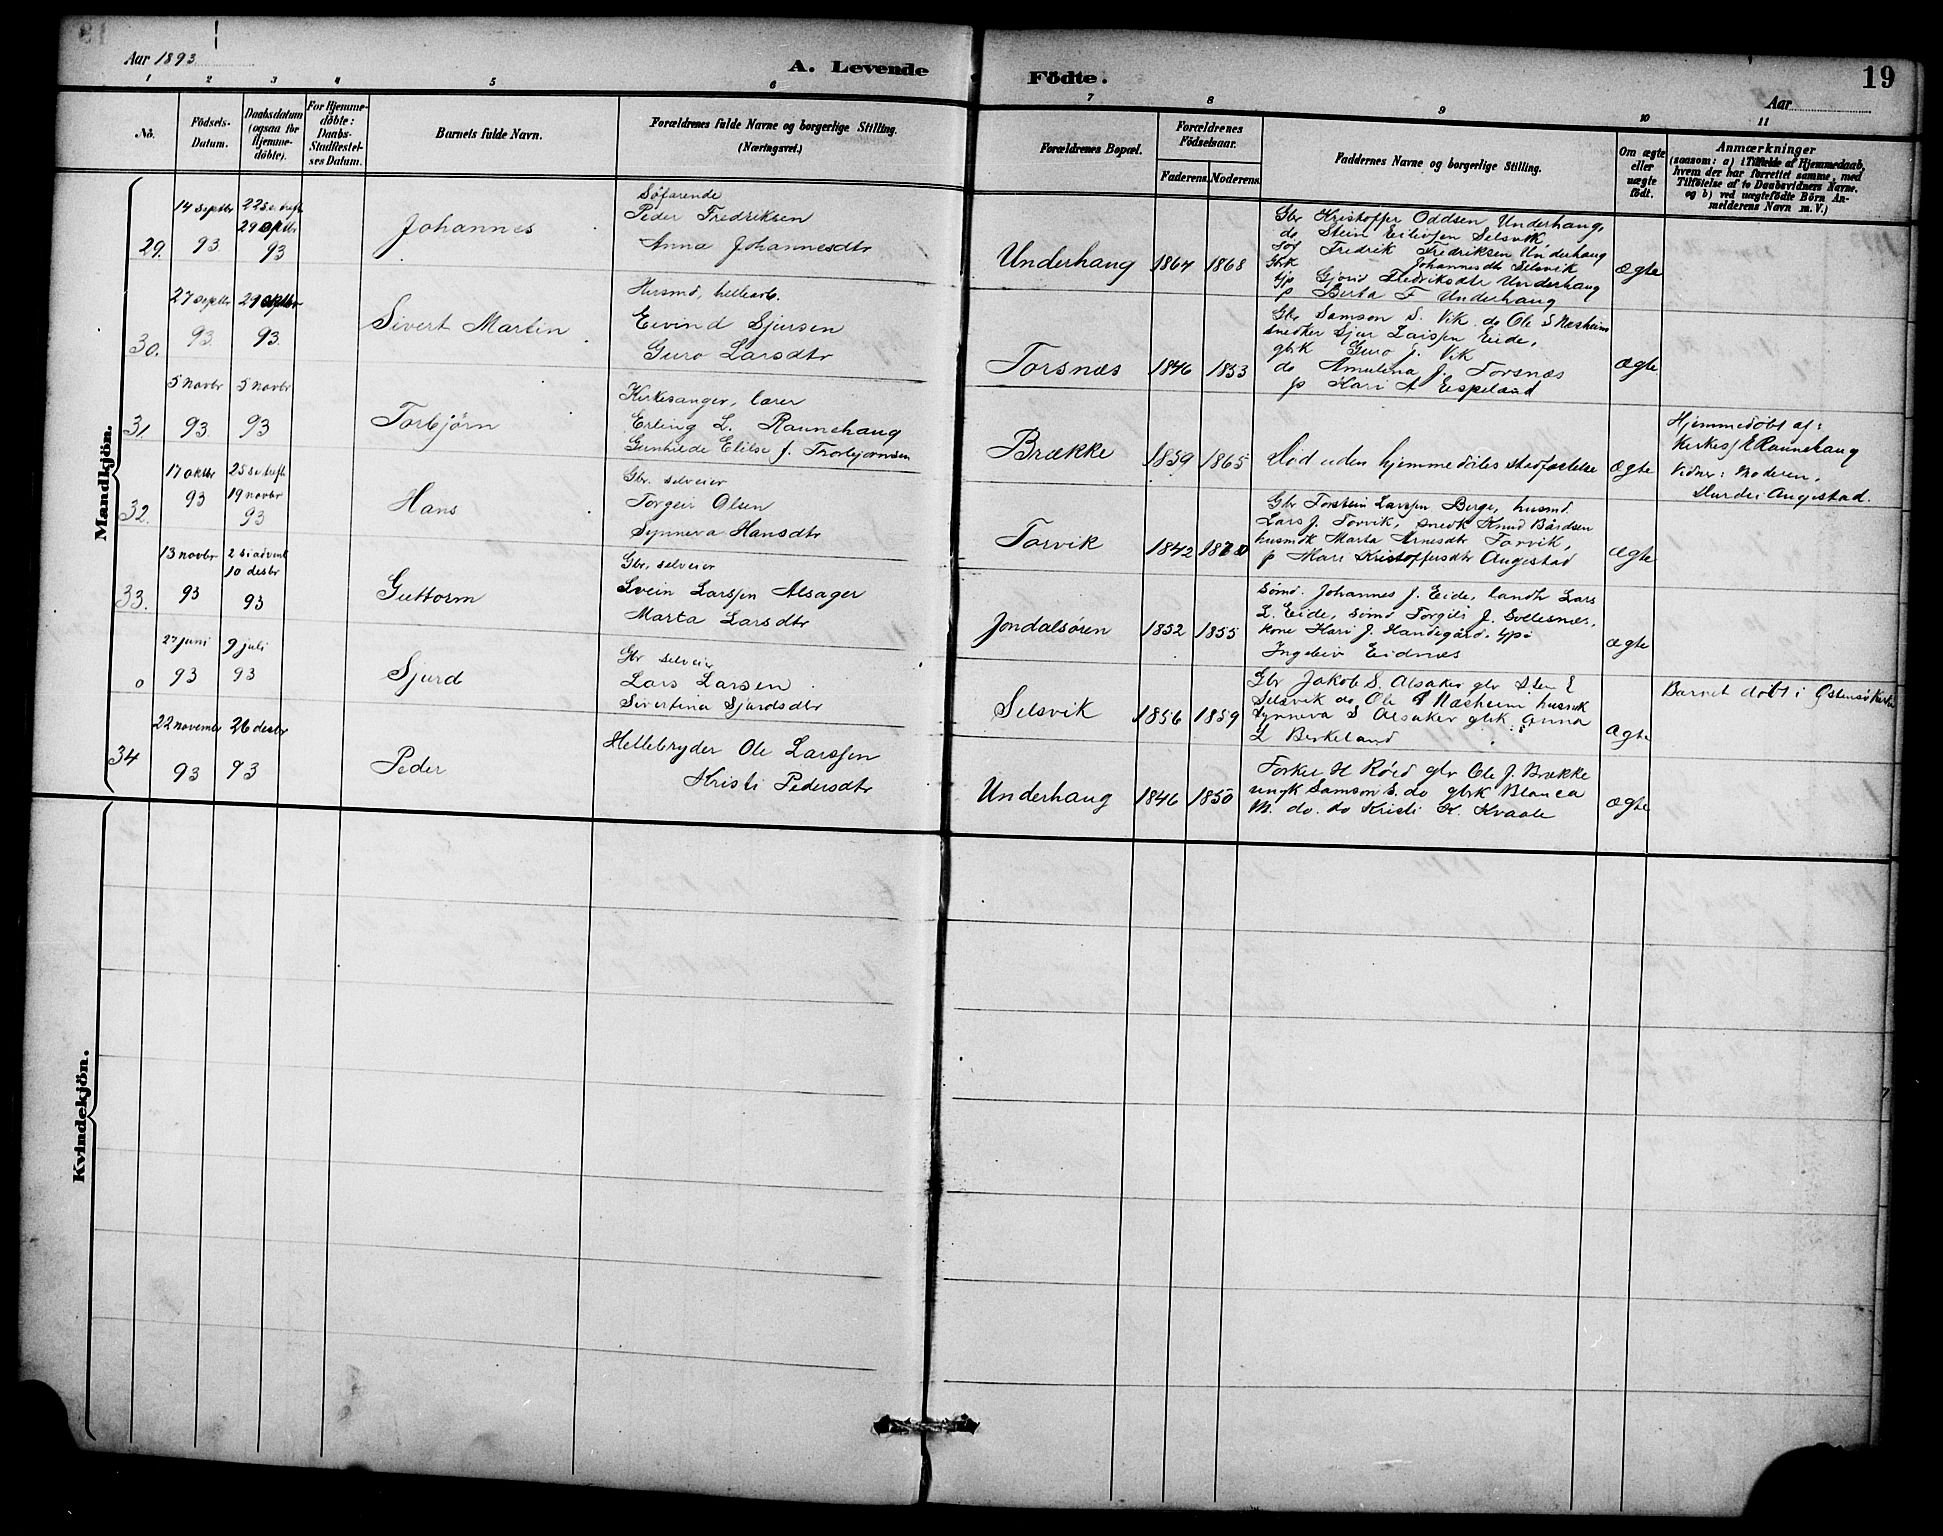 Aar 1893
A. Levende Födte.
19
Aar
1 2 3 4 5 6 7 8 9 10 11
No.
Födsels-
Datum.
Daabsdatum
(ogsaa for
Hjemme-
döbte).
For Hjemme-
döbte:
Daabs-
StadfæstelsesDatum.
Barnets fulde Navn.
Forældrenes fulde Navne og borgerlige Stilling.
(Næringsvei.)
Forældrenes Bopæl.
Forældrenes
Födselsaar.
Faderens. Moderens.
Faddernes Navne og borgerlige Stilling.
Om ægte
eller
uægte
födt.
Anmærkninger
(saasom: a) i Tilfælde af Hjemmedaab,
hvem der har forrettet samme, med
Tilföielse af to Daabsvidners Navne.
og b) ved uægtefödte Börn An-
melderens Navn m.V.)
Mandkjön.
29.
14 septbr
93
22 s e trefh
29 septbr
93
Johannes
Söfarende
Peder Fredriksen
Anna Johannesdtr
Underhaug 1864 1868
Gbr Kristoffer Oddsen Underhaug,
do Stein Eilivsen Selsvik
Fredrik Fredriksen Underhaug
Gbrk Johannesdtr Selsvik
Gjöri Fredriksdtr Underhaug
p Berta F Underhaug
ægte
30.
27 septbr
93.
29 septbr
93.
Sivert Martin
Husmd, hellearb.
Eivind Sjursen
Guro Larsdtr
Torsnæs 1846 1853
Gbr Samson S. Vik. do Ole S Næsheim
snedker Sjur Larssen Eide,
gbrk Guro J. Vik
do Amulena J. Torsnæs
p Kari A Espeland
ægte
31
5 novbr
93.
5 novbr
93
Torbjörn
Kirkesanger, lærer
Erling L. Raunehaug
Gunhilde Elise f. Thorbjornsen
Brække 1859 1865
Död uden hjemmedöbtes stadfæstelse
ægte
Hjemmedöbt af:
Kirkes/ E Raunehaug
Vidner: Moderen,
Durdei Augestad.
32.
17 oktbr
93
25 s e trefh
19 novbr
93
Hans
Gbr. selveier
Torgeir Olsen
Synneva Hansdtr
Torvik 1842 1870
Gbr Torstein Larssen Berge, husmd
Lars J. Torvik, snedk Knud Bårdsen
husmdk Marta Arnesdtr Torvik,
p Mari Kristoffersdtr Augestad
ægte
33.
13 novbr
93
2 s i advent
10 desbr
93
Guttorm
Gbr. selveier
Svein Larssen Alsager
Marta Larsdtr
Jondalsören 1852 1855
Sömd. Johannes J. Eide, landh Lars
L. Eide, sömd Torgils J. Sollesnæs,
kone Kari J. Handegård, tjp
Ingeleiv Eidnæs
ægte
0
27 juni
93
9 juli
93
Sjurd
Gbr selveier
Lars Larsen
Sivertina Sjurdsdtr
Selsvik 1856 1859
Gbr Jakob S. Alsaker gbr Sten E
Selsvik do Ole S Næsheim husmk
Synneva S Alsaker gbrk Anna
L Berkeland
ægte
Barnet döbt i Östensö Kirke
34
22 november
93
26 desbr
93
Peder
Hellebryder Ole Larssen
Kristi Pedersdtr
Underhaug 1846 1850
Torkel H Röed gbr Ole J. Brække
ungk Samson S. do gbrk Blanca
M. do. do Kristi K. Kvaale
ægte
Kvindekjön.